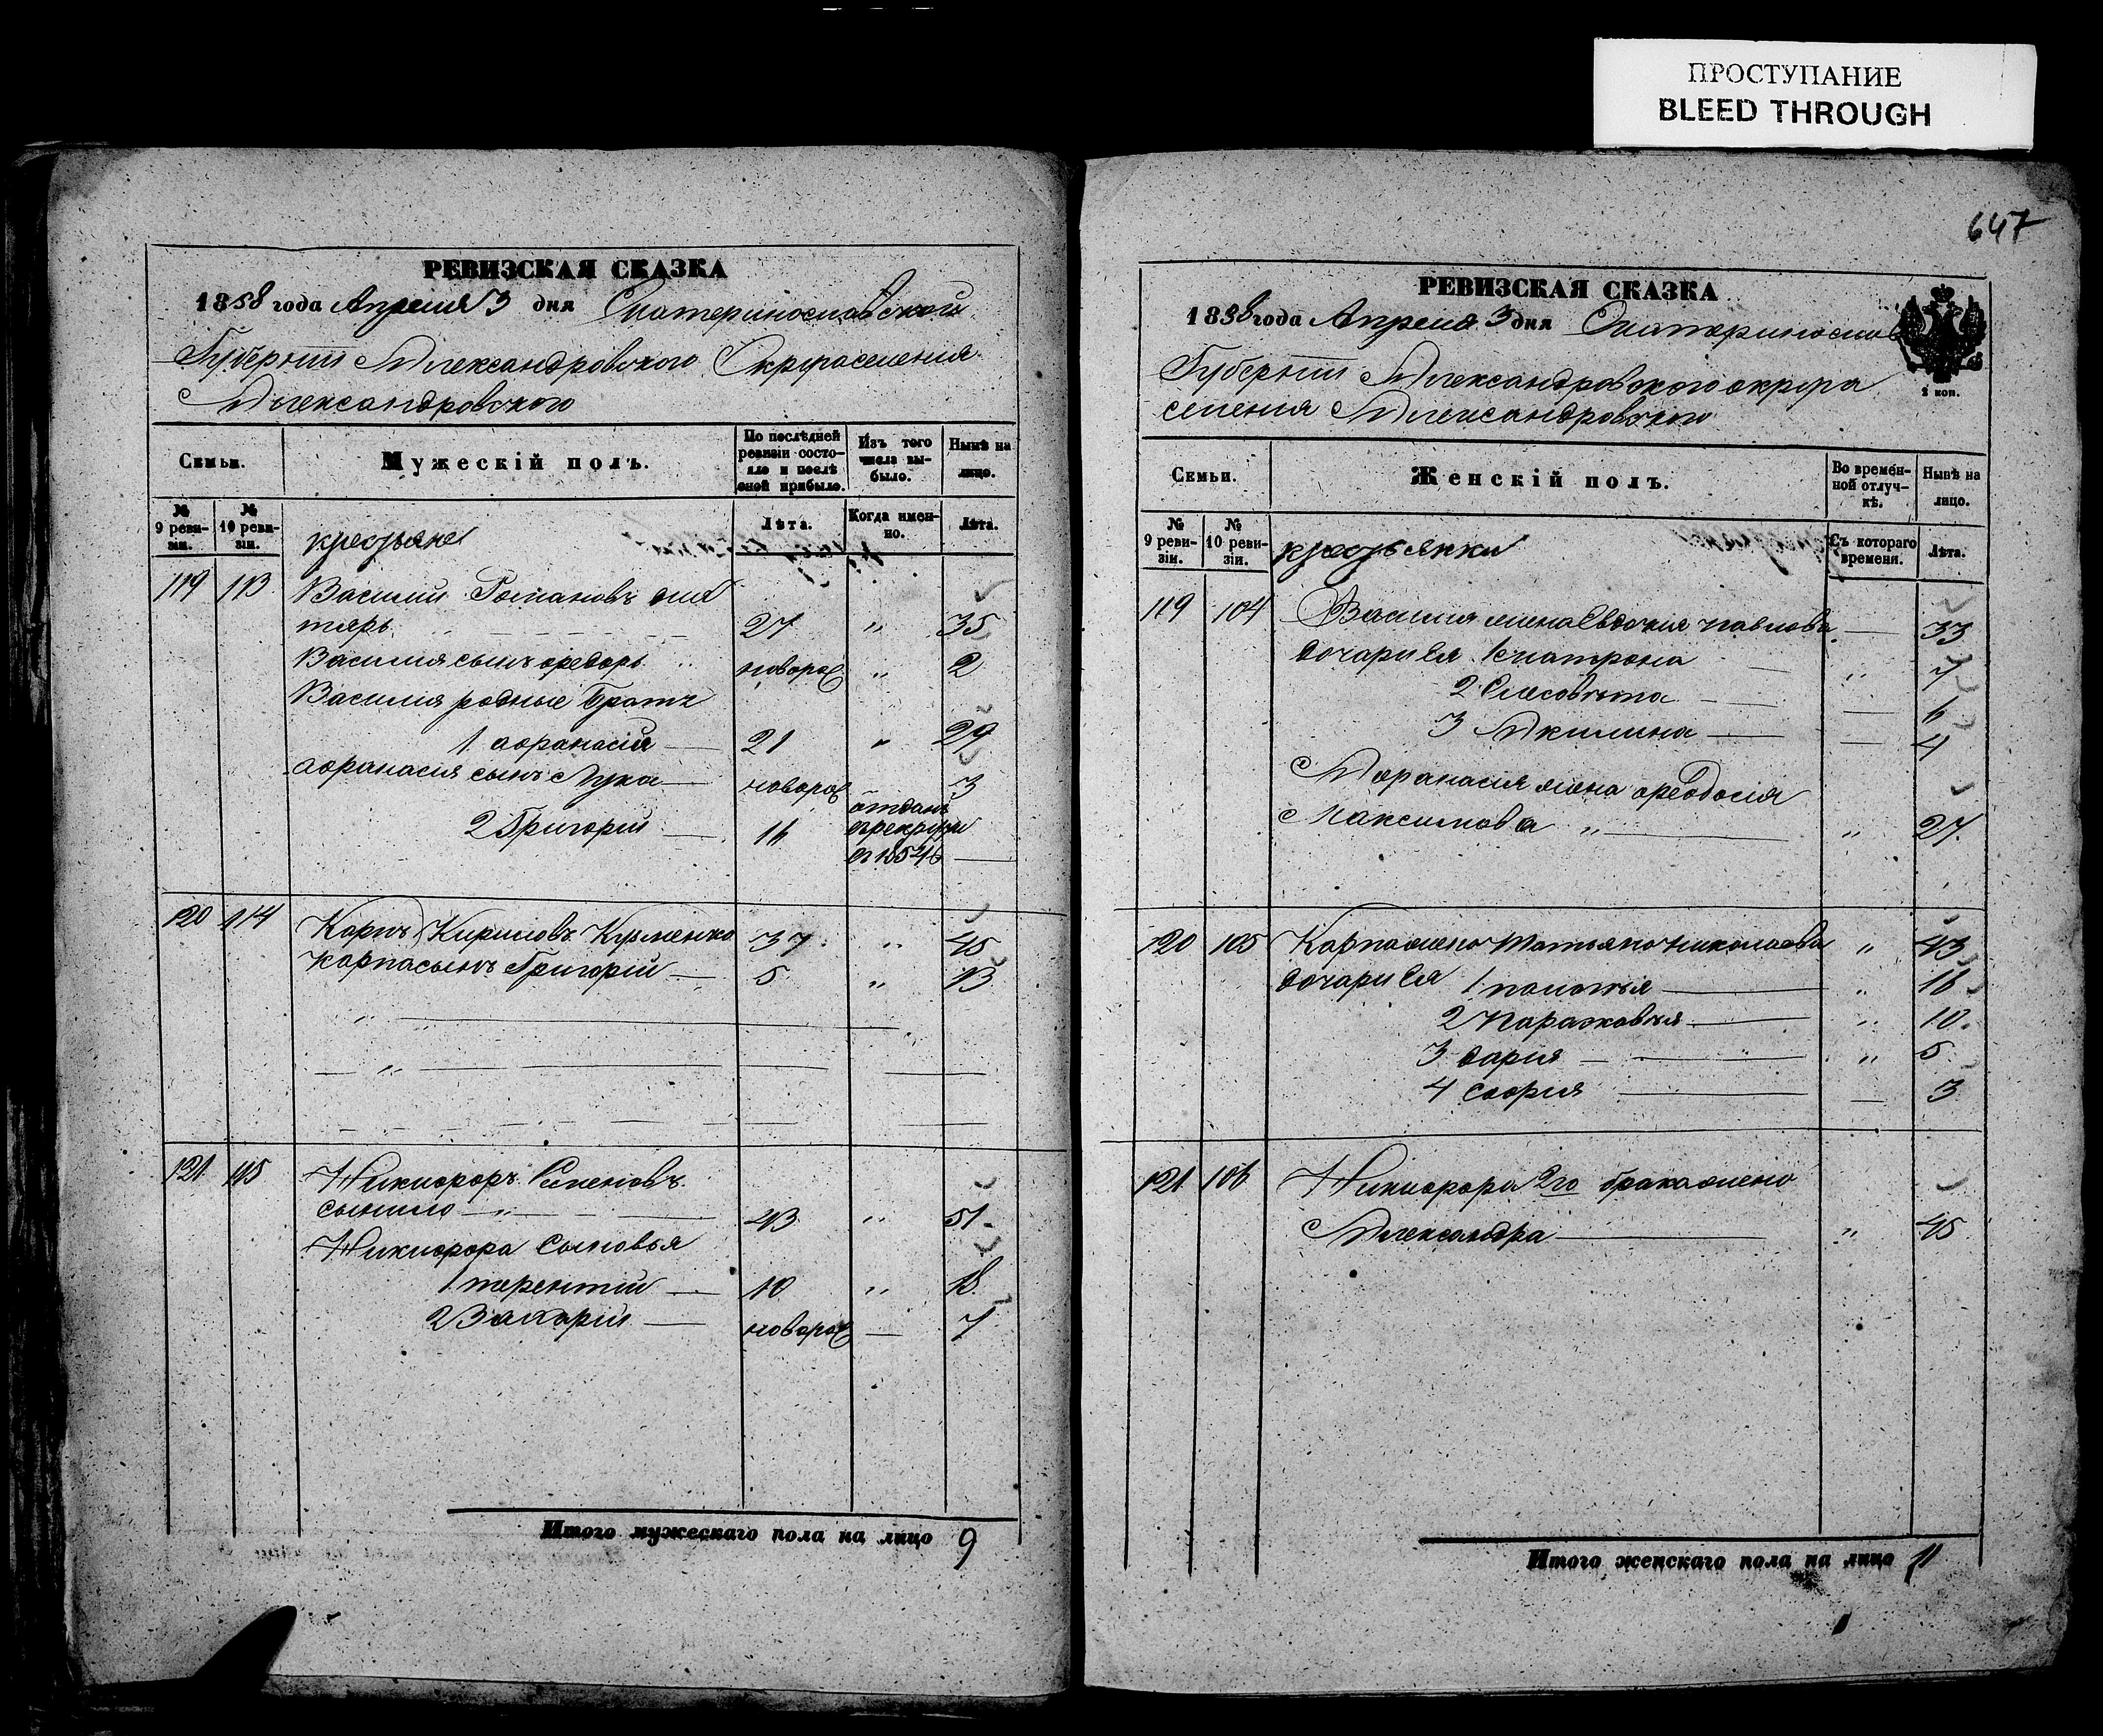 ПРОСТУПАНИЕ
BLEED THROUGH
РЕВИЗСКАЯ СКАЗКА
1858 года Апреля 3 дня Екатеринославской
Губернии Александровского Округа селения
Александровского
Семьи.
Мужескій полъ.
По послѣдней ревизіи состояло и послѣ оной прибыло.
Изъ того числа выбыло.
Нынѣ на лицо.
№ 9 ревизіи.
№ 10 ревизіи.
крестьяне
Лѣта.
Когда именно.
Лѣта.
119 113 Василий Романовъ
тярь 27 " 35
Василия сынъ Федоръ новорож " 2
Василия родные братя
1 Афанасій 21 " 29
Афанасия сынъ Лука новорож 3
2 Григорій 16 отданъ
в рекруты
в 1854 г
120 114 Карпъ Кириловъ Кузменко 37 " 45
Карпа сынъ Григорій 5 " 13
121 115 Никифоръ Семеновъ
43 " 51
Никифора сыновья
1 терентій 10 " 18
2 Захарій новорож 7
Итого мужескаго пола на лицо 9
647
РЕВИЗСКАЯ СКАЗКА
1858 года Апреля 3 дня Екатеринослав
Губернии Александровского округа
селения Александровского
2 коп.
Семьи.
Женскій полъ.
Во временной отлучкѣ.
Нынѣ на лицо.
№ 9 ревизіи.
№ 10 ревизіи.
крестьянки
Съ котораго времени.
Лѣта.
119 104 Василия жена Евдокия павлова 33
дочери Ея 1 матрона " 7
2 Елисовета 6
3 Акилина 4
Афанасия жена феодосия
Максимова " " 27
120 105 Карпа жена Татьяна николаева " 43
дочери Ея 1 пелагея " 16
2 Парасковья " 10
3 дария " 5
4 софия 3
121 106 Никифора 2го брака жена
Александра " 45
Итого женскаго пола на лицо 11